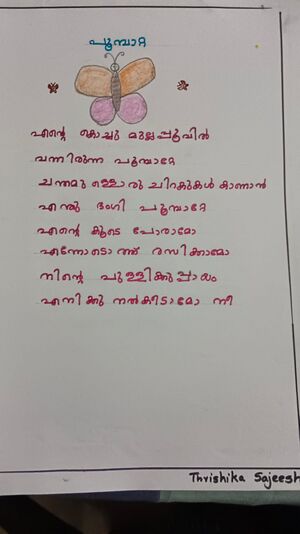 പൂമ്പാറ്റ
എന്റെ കൊച്ചു മുല്ലപ്പൂവിൽ
വന്നിരുന്ന പൂമ്പാറ്റേ
ചന്തമുള്ളൊരു ചിറകുകൾ കാണാൻ
എന്തു ഭംഗി പൂമ്പാറ്റേ
എന്റെ കൂടെ പോരാമോ
എന്നോടൊത്ത് രസിക്കാമോ
നിന്റെ പുള്ളിക്കുപ്പായം
എനിക്കു നൽകീടാമോ നീ
Thrishika Sajeesh